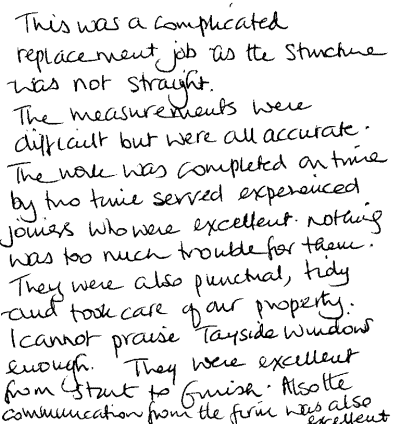 This was a complicated
replacement job as the structure
was not straight.
The measurements were
difficult but were all accurate.
The work was completed on time
by two time served experienced
joiners who were excellent. nothing
was too much trouble for them.
They were also punctual, tidy
and took care of our property.
I cannot praise Tayside Windows
enough. They were excellent
from start to finish. Also the
communication from the firm was also
excellent